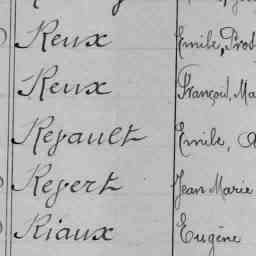 Reux Emile, Prod
Reux François, Ma
Reyault Emile, A
Reyert Jean Marie
Riaux Eugène